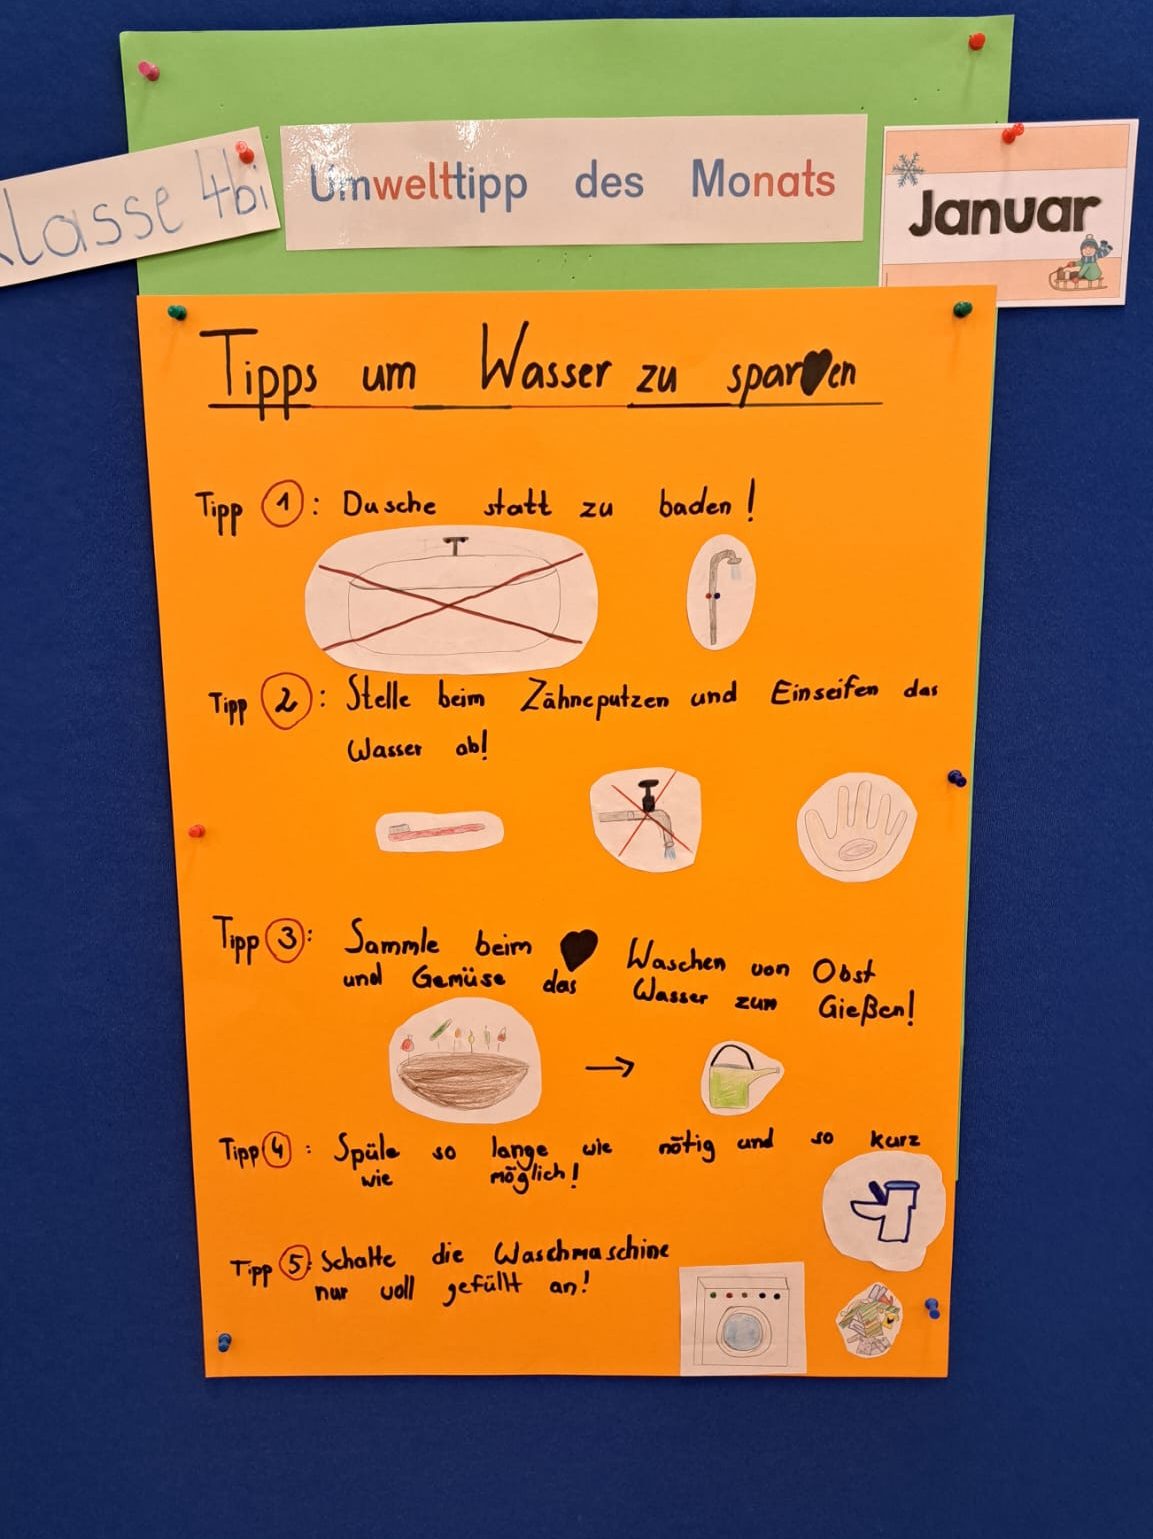 Klasse 4bi
Umwelttipp des Monats
Januar
Tipps um Wasser zu sparen
Tipp 1: Dusche statt zu baden!
Tipp 2: Stelle beim Zähneputzen und Einseifen das
Wasser ab!
Tipp 3: Sammle beim Waschen von Obst
und Gemüse das Wasser zum Gießen!
Tipp 4: Spüle so lange wie nötig und so kurz
wie möglich!
Tipp 5: Schalte die Waschmaschine
nur voll gefüllt an!